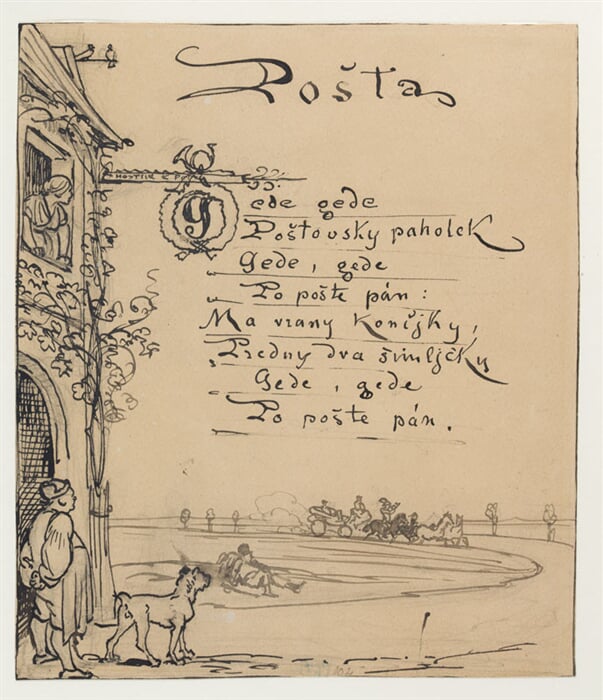 Pošta
HOSTINEC P
Gede gede
Poštovsky paholek
Gede, gede
Po pošte pán:
Ma vrany konijky,
Predny dva šimljčky
Gede, gede
Po pošte pán.